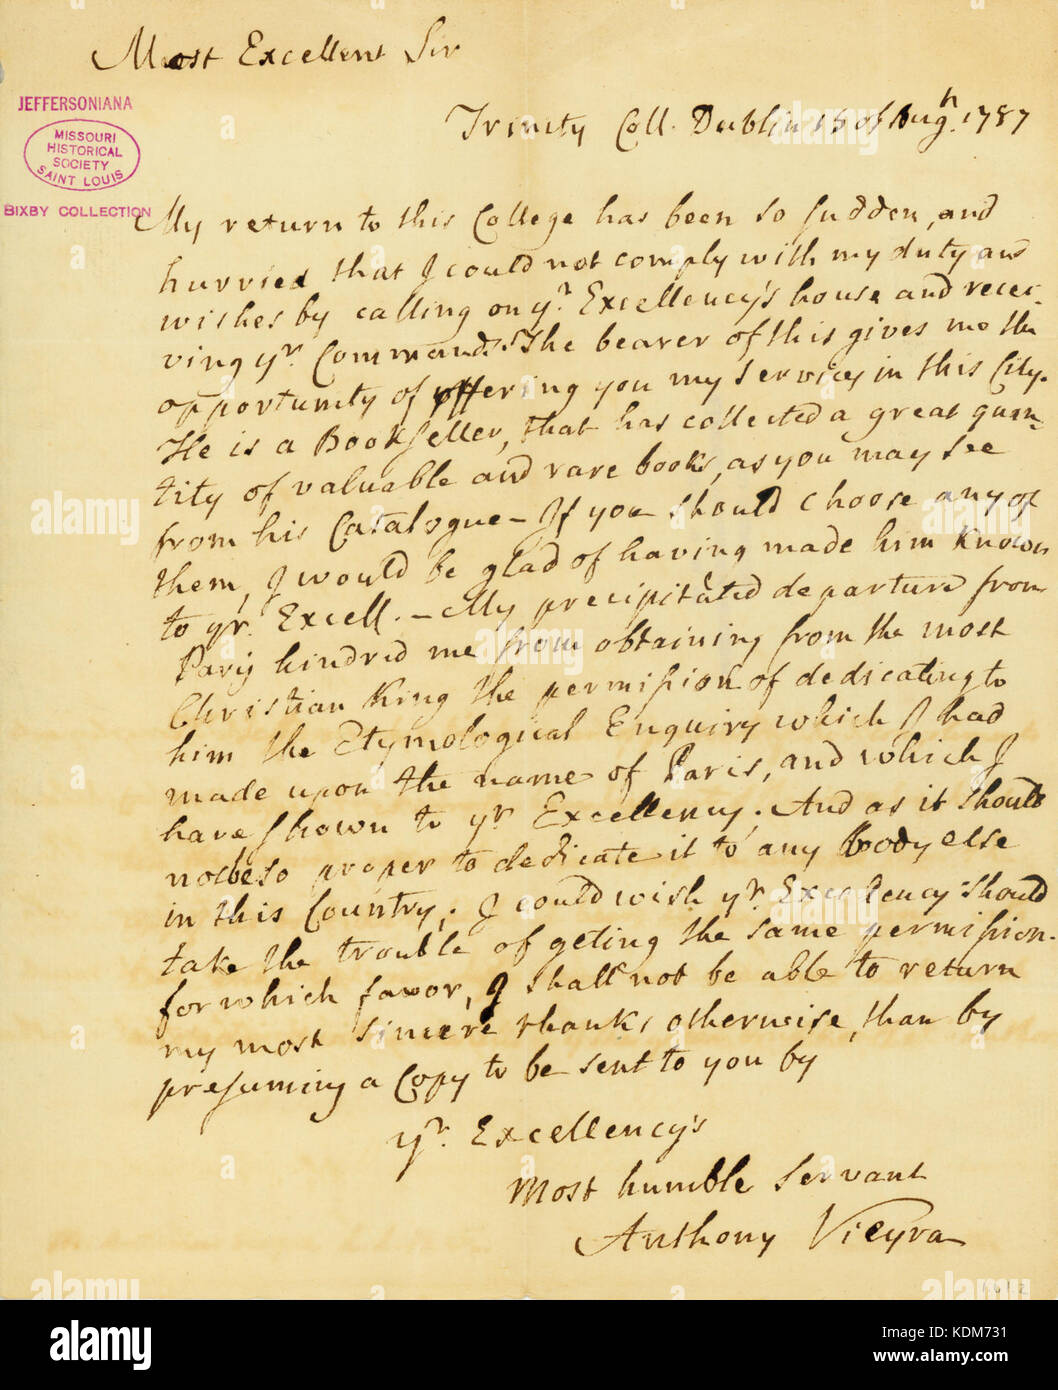 Most Excellent Sir
JEFFERSONIANA
MISSOURI
HISTORICAL
SOCIETY
SAINT LOUIS
BIXBY COLLECTION
Trinity Coll. Dublin 18 of Augh. 1787
My return to this College has been so sudden, and
hurried that I could not comply with my duty and
wishes by calling on yr. Excellency's house and recei-
ving yr. Commands. The bearer of this gives me the
opportunity of offering you my services in this City.
He is a Bookseller, that has collected a great quan-
tity of valuable and rare books, as you may see
from his Catalogue – If you should choose any of
them, I would be glad of having made him known
to yr. Excell. – My precipitated departure from
Paris hindred me from obtaining from the most
Christian King the permission of dedicating to
him the Etymological Enquiry which I had
made upon the name of Paris, and which I
have shown to yr Excellency. And as it should
not be so proper to dedicate it to any body else
in this Country; I could wish yr. Excellency should
take the trouble of geting the same permission.
for which favor, I shall not be able to return
my most sincere thanks otherwise, than by
presuming a Copy to be sent to you by
yr. Excellency's
Most humble servant
Anthony Vieyra
alamy
Image ID: KDM731
www.alamy.com